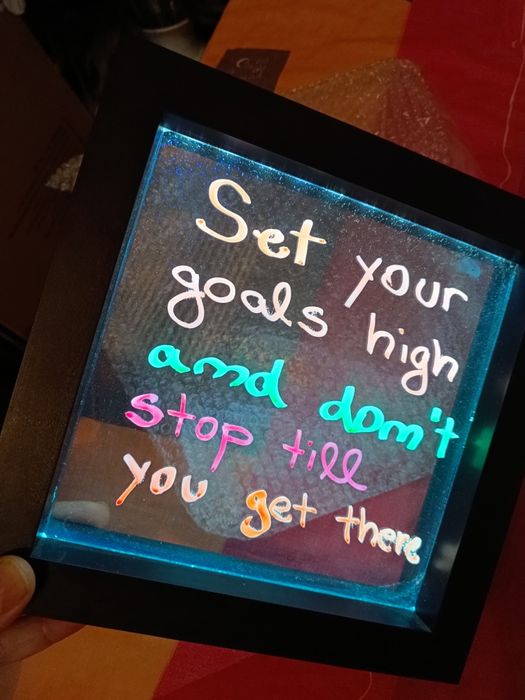 Set your
goals high
and don't
stop till
you get there